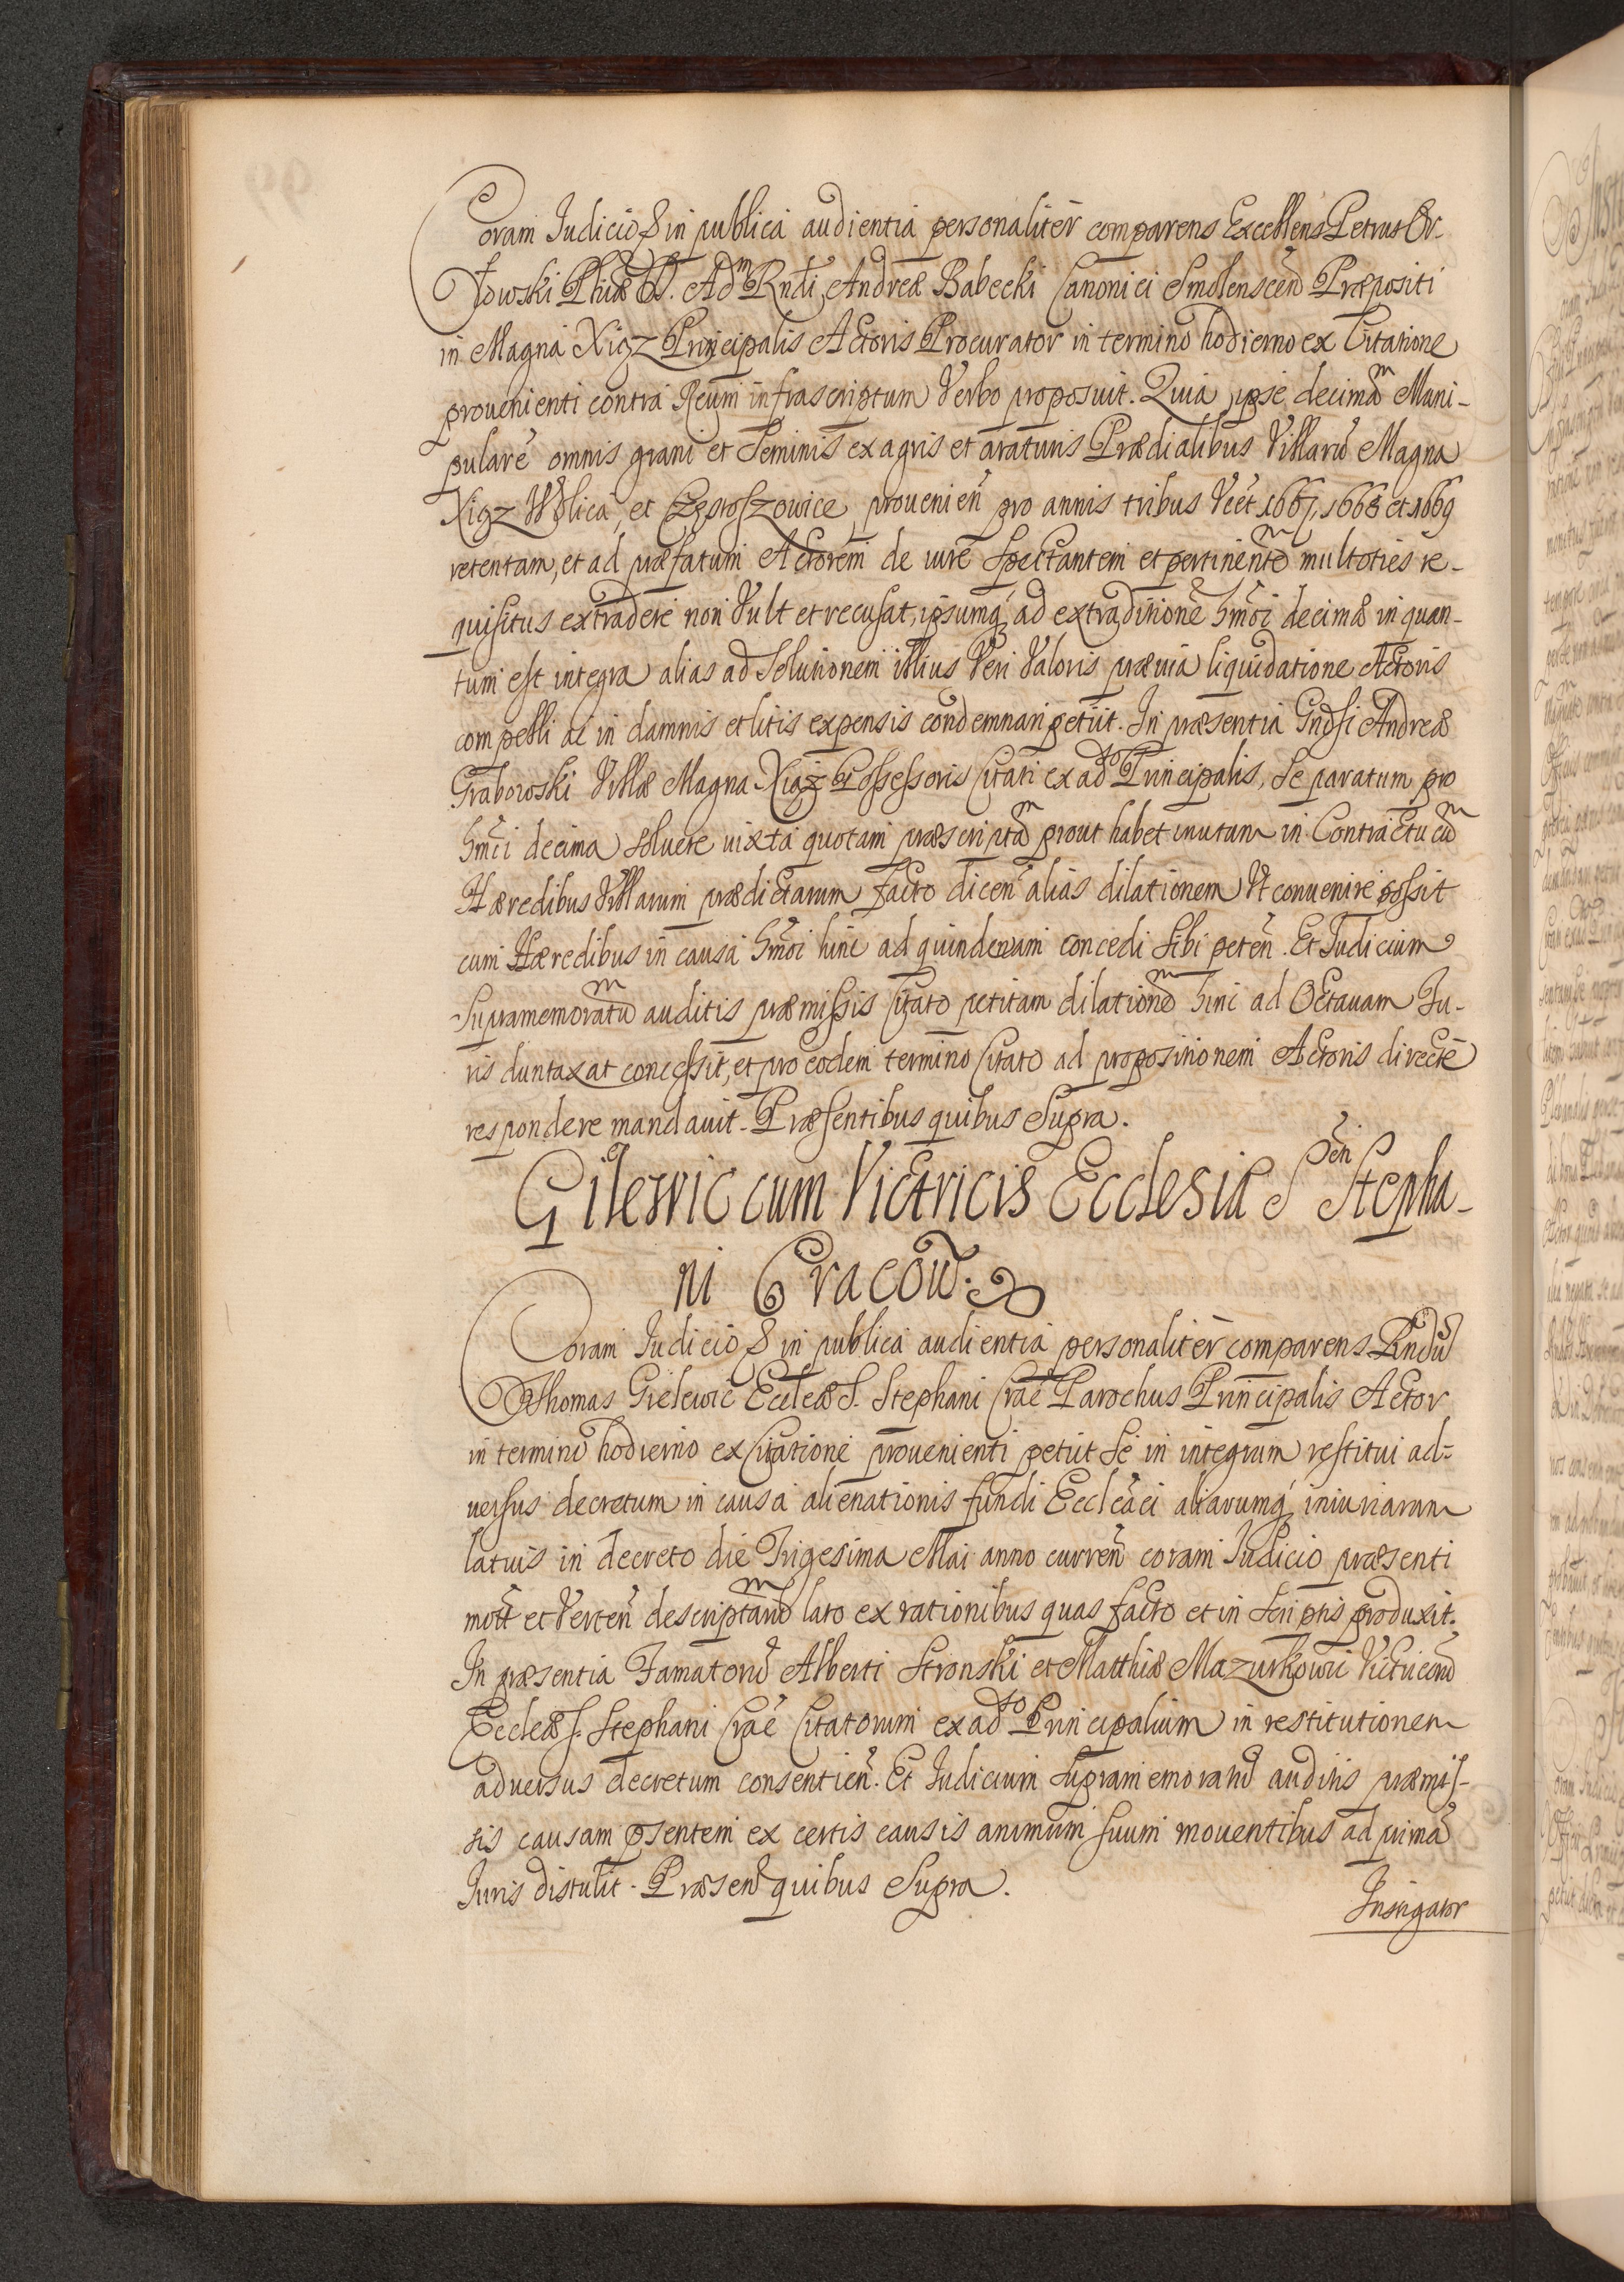 Coram Judicio & in publica audientia personalitèr comparens Excellens Petrus Or-
łowski Phiæ D. Adm Rndi Andreæ Babecki Canonici Smolenscen Præpositi
in Magna Xigz Principalis Actoris Procurator in termino hodierno ex Citatione
prouenienti contra Reum infrascriptum Verbo proposuit. Quia ipse decimam Mani-
pularē omnis grani et Seminis ex agris et araturis Prædialibus Villarū Magna
Xigz Wolica, et Częstoszowice prouenieñ pro annis tribus Vēt 1667, 1668 et 1669
retentam, et ad præfatum Actorem de iure Spectantem et pertinentem multoties re-
quisitus extradere non Vult et recusat, ipsumq́ ad extraditionē hmōi decimæ in quan-
tum est integra alias ad Solutionem illius Veri Valoris præuia liquidatione Actoris
compelli ac in damnis et litis expensis condemnari petiit. In præsentia Gndsi Andreæ
Grabowski Villæ Magna Xigz Possessoris Citati ex adso Principalis, Se paratum pro
hmōi decima soluere iuxta quotam præscriptam prout habet inutam in Contractu cum
Hæredibus Villarum prædictarum facto diceñ alias dilationem Vt conuenire possit
cum Hæredibus in causa hmōi hinc ad quindenam concedi Sibi peteñ. Et Judicium
Supramemoratum auditis præmissis Citato petitam dilationem hinc ad Octauam Ju-
ris duntaxat concessit, et pro eodem termino Citato ad propositionem Actoris directè
respondere mandauit. Præsentibus quibus Supra.
Gilewic cum Victricis Ecclesiæ S Stepha-
ni Cracoũ.
Coram Judicio & in publica audientia personalitèr comparens Rndũ
Thomas Gielewic Eccleæ S. Stephani Craē Parochus Principalis Actor
in termino hodierno ex Citatione prouenienti petiit Se in integrum restitui ad-
uersus decretum in causa alienationis fundi Eccleāci aliarumq́ iniuriarum
latius in decreto die Trigesima Mai anno curreñ coram Judicio præsenti
mott et Verteñ descriptarum lato ex rationibus quas facto et in Scriptis produxit.
In præsentia Famatorũ Alberti Stronski et Matthiæ Mazurkowic Victricorũ
Eccleæ S. Stephani Craē Citatorum ex adso Principalium in restitutionem
aduersus decretum consentieñ. Et Judicium Supramemoratũ auditis præmis-
sis causam psentem ex certis causis animum suum mouentibus ad primā
Juris distulit. Præseñ quibus Supra.
Instigator